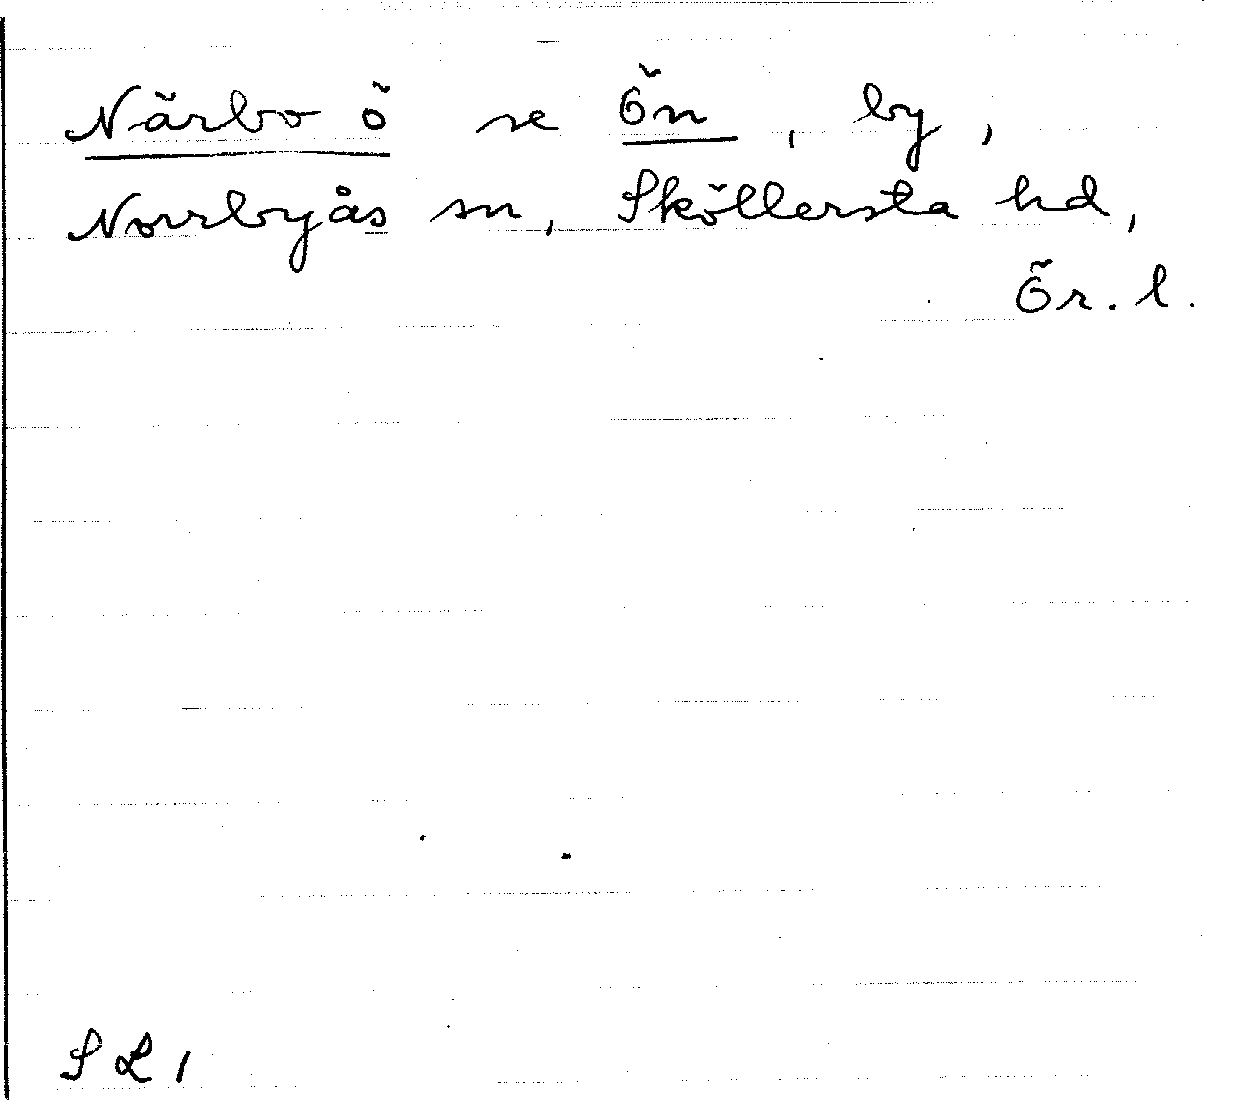 Närbo ö se Ön, by,
Norrbyås sn, Sköllersta hd,
Ör. l.
S L 1